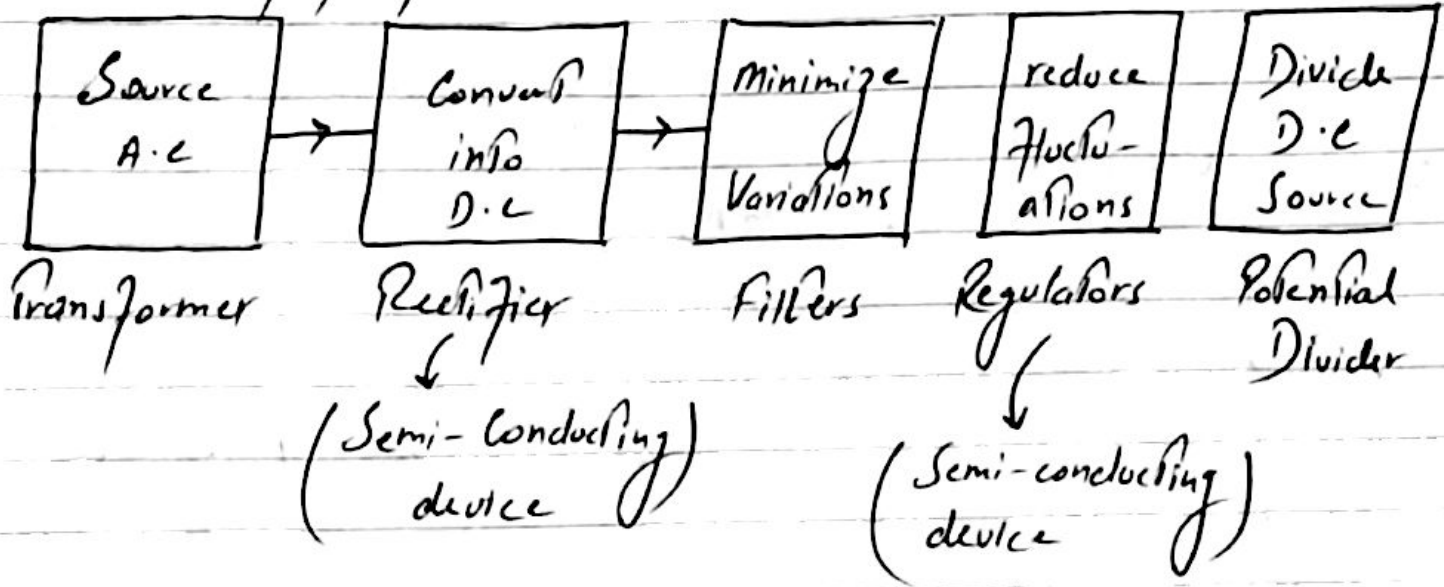 Source
A.C
Convert
into
D.C
Minimize
Variations
reduce
fluctu-
ations
Divide
D.C
Source
Transformer
Rectifier
Filters
Regulators
Potential
Divider
(Semi-Conducting
device)
(Semi-conducting
device)